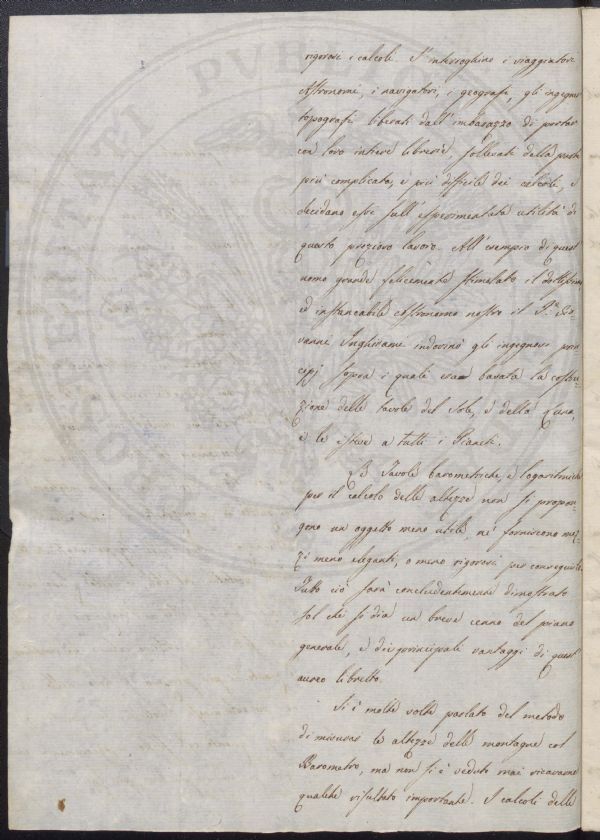 rigorosi i calcoli. S'interroghino i viaggiatori
Astronomi, i navigatori, i geografi, gli ingegneri
topografi liberati dall'imbarazzo di portar
con loro intiere librerie, sollevati della parte
più complicata, e più difficile dei calcoli, e
decidano essi sull'esperimentata utilità di
questo prezioso lavoro. All'esempio di quest'
uomo grande felicemente stimolato il dottissimo
ed instancabile astronomo nostro il P. Gio-
vanni Inghirami indovinò gli ingegnosi prin-
cipj sopra i quali era basata la costru-
zione delle tavole del Sole, e della Luna,
e le estese a tutti i Pianeti.
Le Tavole barometriche, e logaritmiche
per il calcolo delle altezze non si propon-
gono un oggetto meno utile, nè forniscono mez-
zi meno eleganti, o meno rigorosi per conseguirlo.
Tutto ciò sarà concludentemente dimostrato
sol che si dia un breve cenno del piano
generale, e dei principali vantaggi di quest'
aureo libretto.
Si è molte volte parlato del metodo
di misurar le altezze delle montagne col
Barometro, ma non si è veduto mai ricavarne
qualche risultato importante. I calcoli delle
PVBLICO